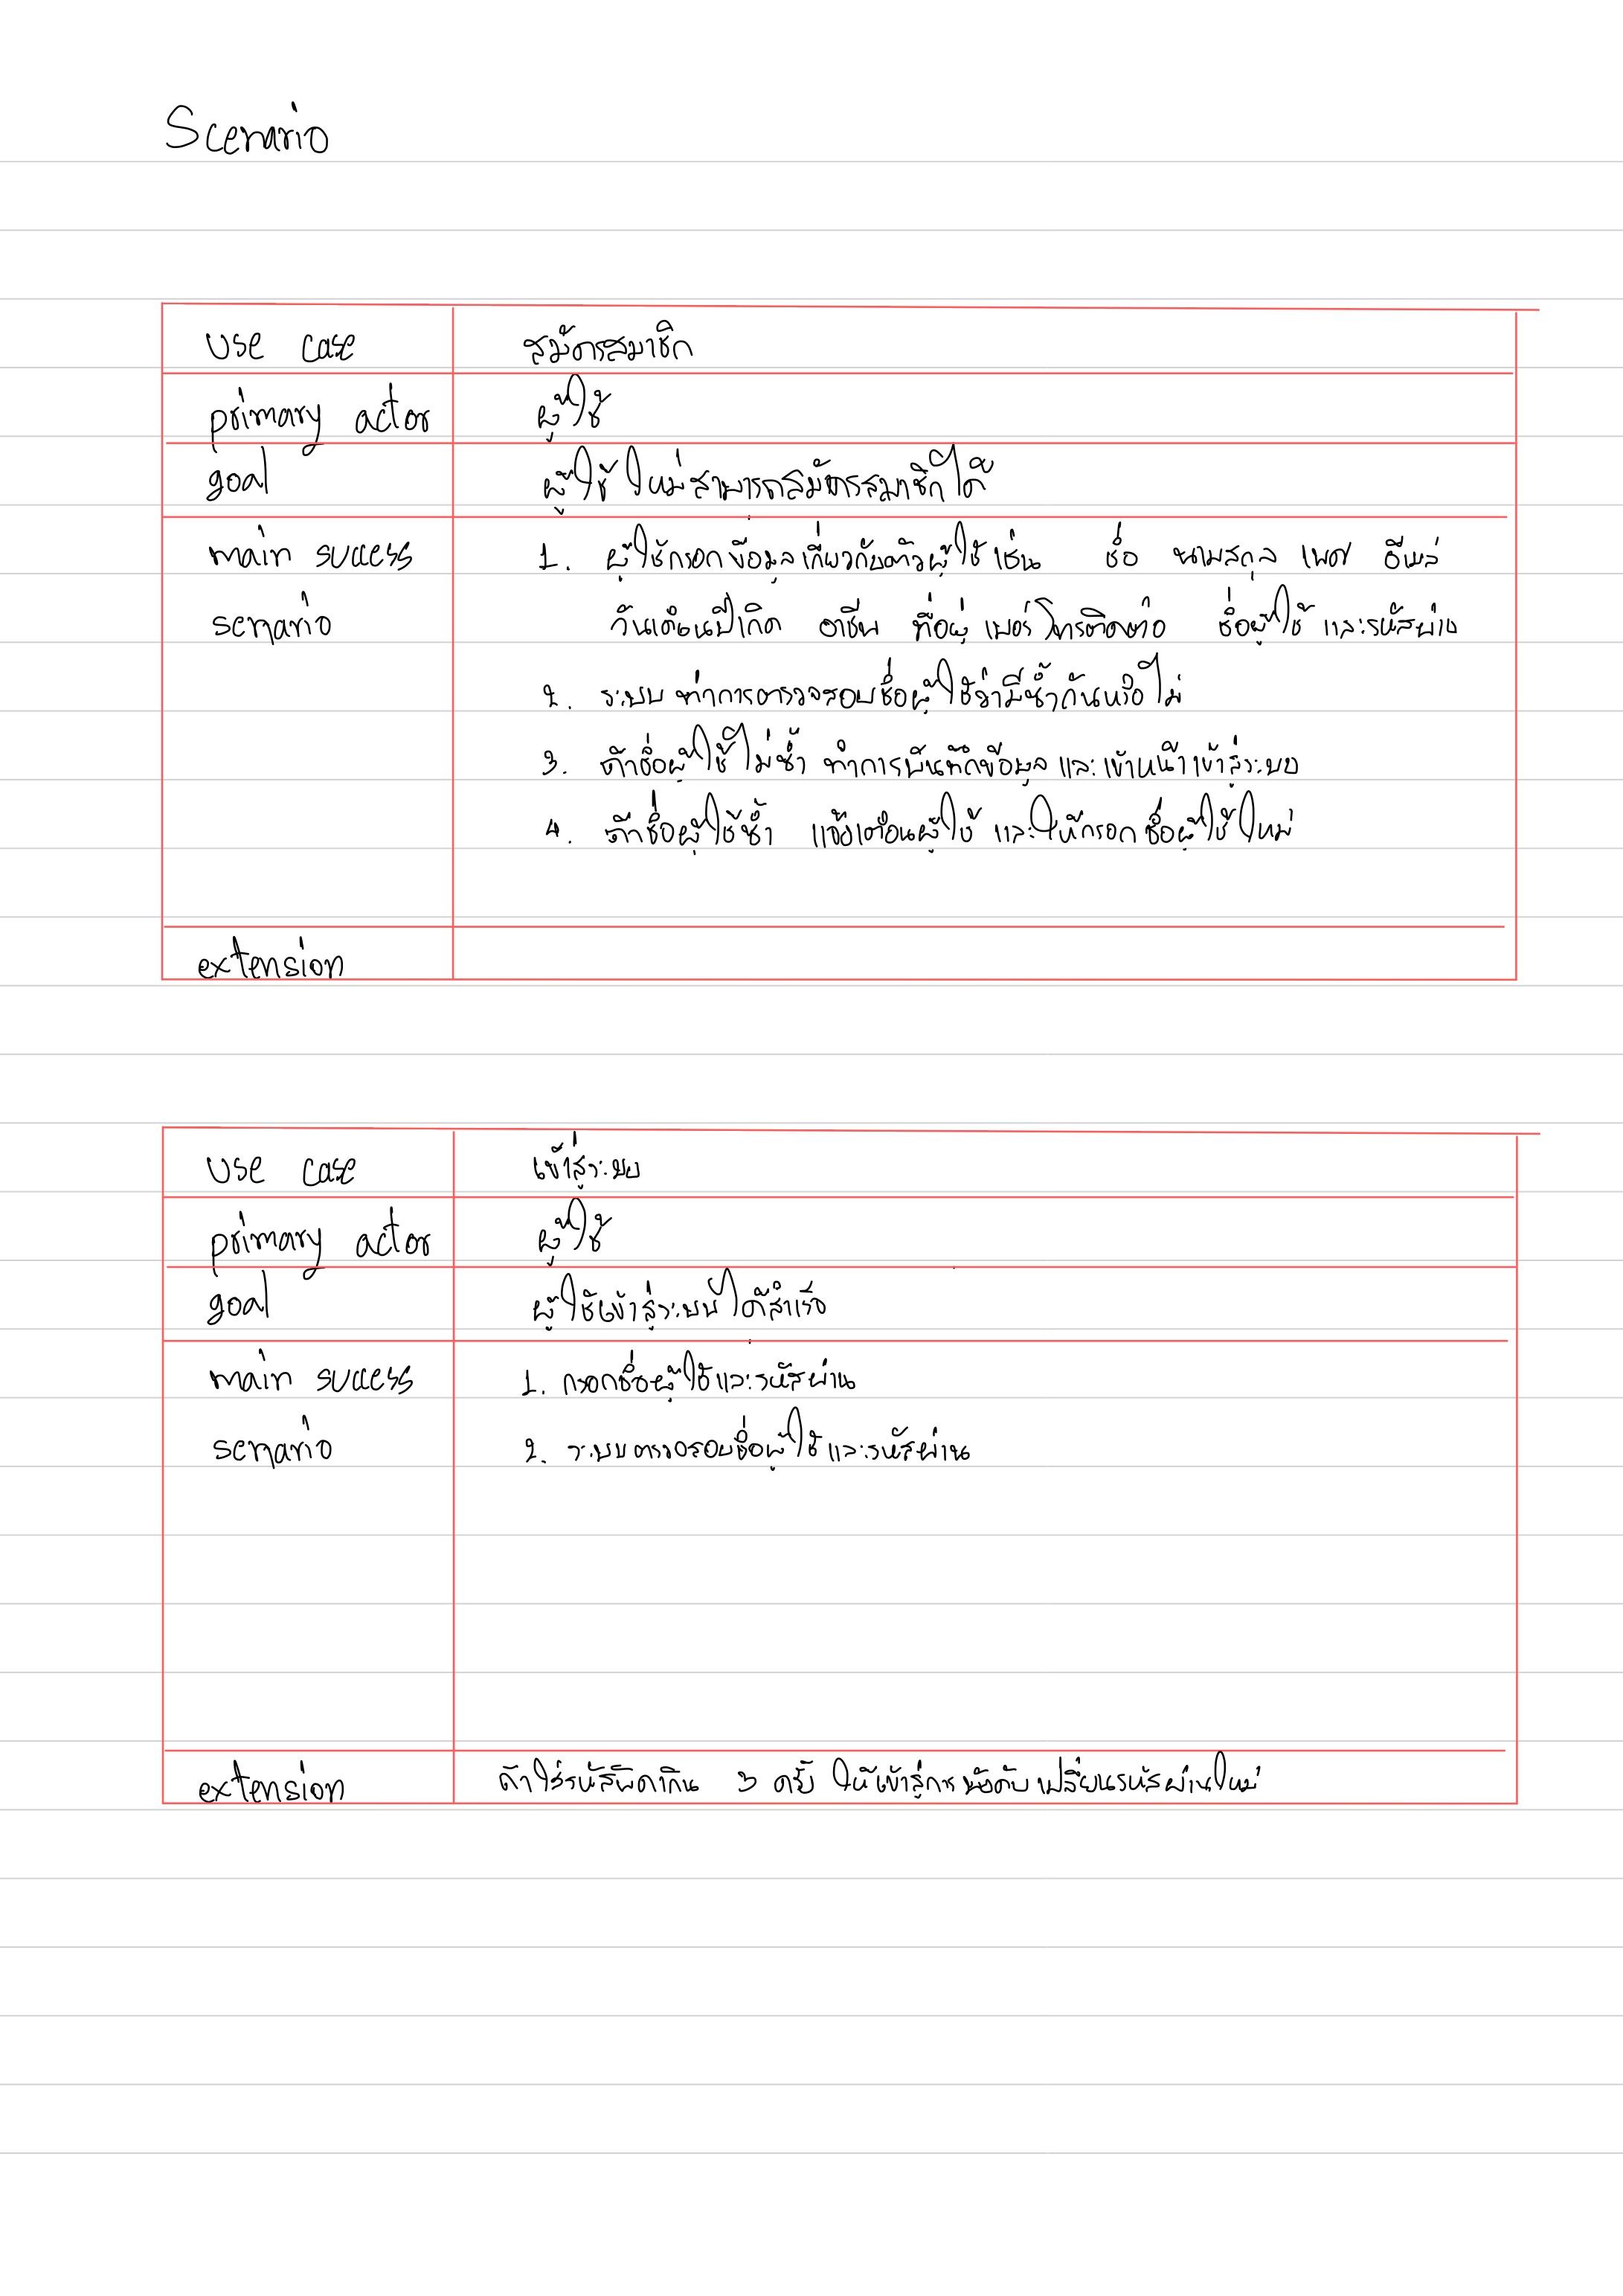 Scenario
use case สมัครสมาชิก
primary actor ผู้ใช้
goal ผู้ใช้ใหม่สามารถสมัครสมาชิกได้
main success 1. ผู้ใช้กรอกข้อมูลเกี่ยวกับตัวผู้ใช้ เช่น ชื่อ นามสกุล เพศ อีเมล์
senario วันเดือนปีเกิด อาชีพ ที่อยู่ เบอร์โทรติดต่อ ชื่อผู้ใช้ และรหัสผ่าน
2. ระบบ ทำการตรวจสอบชื่อผู้ใช้ว่ามีซ้ำกันหรือไม่
3. ถ้าชื่อผู้ใช้ไม่ซ้ำ ทำการบันทึกข้อมูล และ เข้าหน้าเข้าสู่ระบบ
4. ถ้าชื่อผู้ใช้ซ้ำ แจ้งเตือนผู้ใช้ และให้กรอกชื่อผู้ใช้ใหม่
extension
use case เข้าสู่ระบบ
primary actor ผู้ใช้
goal ผู้ใช้เข้าสู่ระบบได้สำเร็จ
main success 1. กรอกชื่อผู้ใช้และรหัสผ่าน
senario 2. ระบบตรวจสอบชื่อผู้ใช้ และรหัสผ่าน
extension ถ้าใส่รหัสผิดเกิน 3 ครั้ง ให้เข้าสู่การบังคับเปลี่ยนรหัสผ่านใหม่